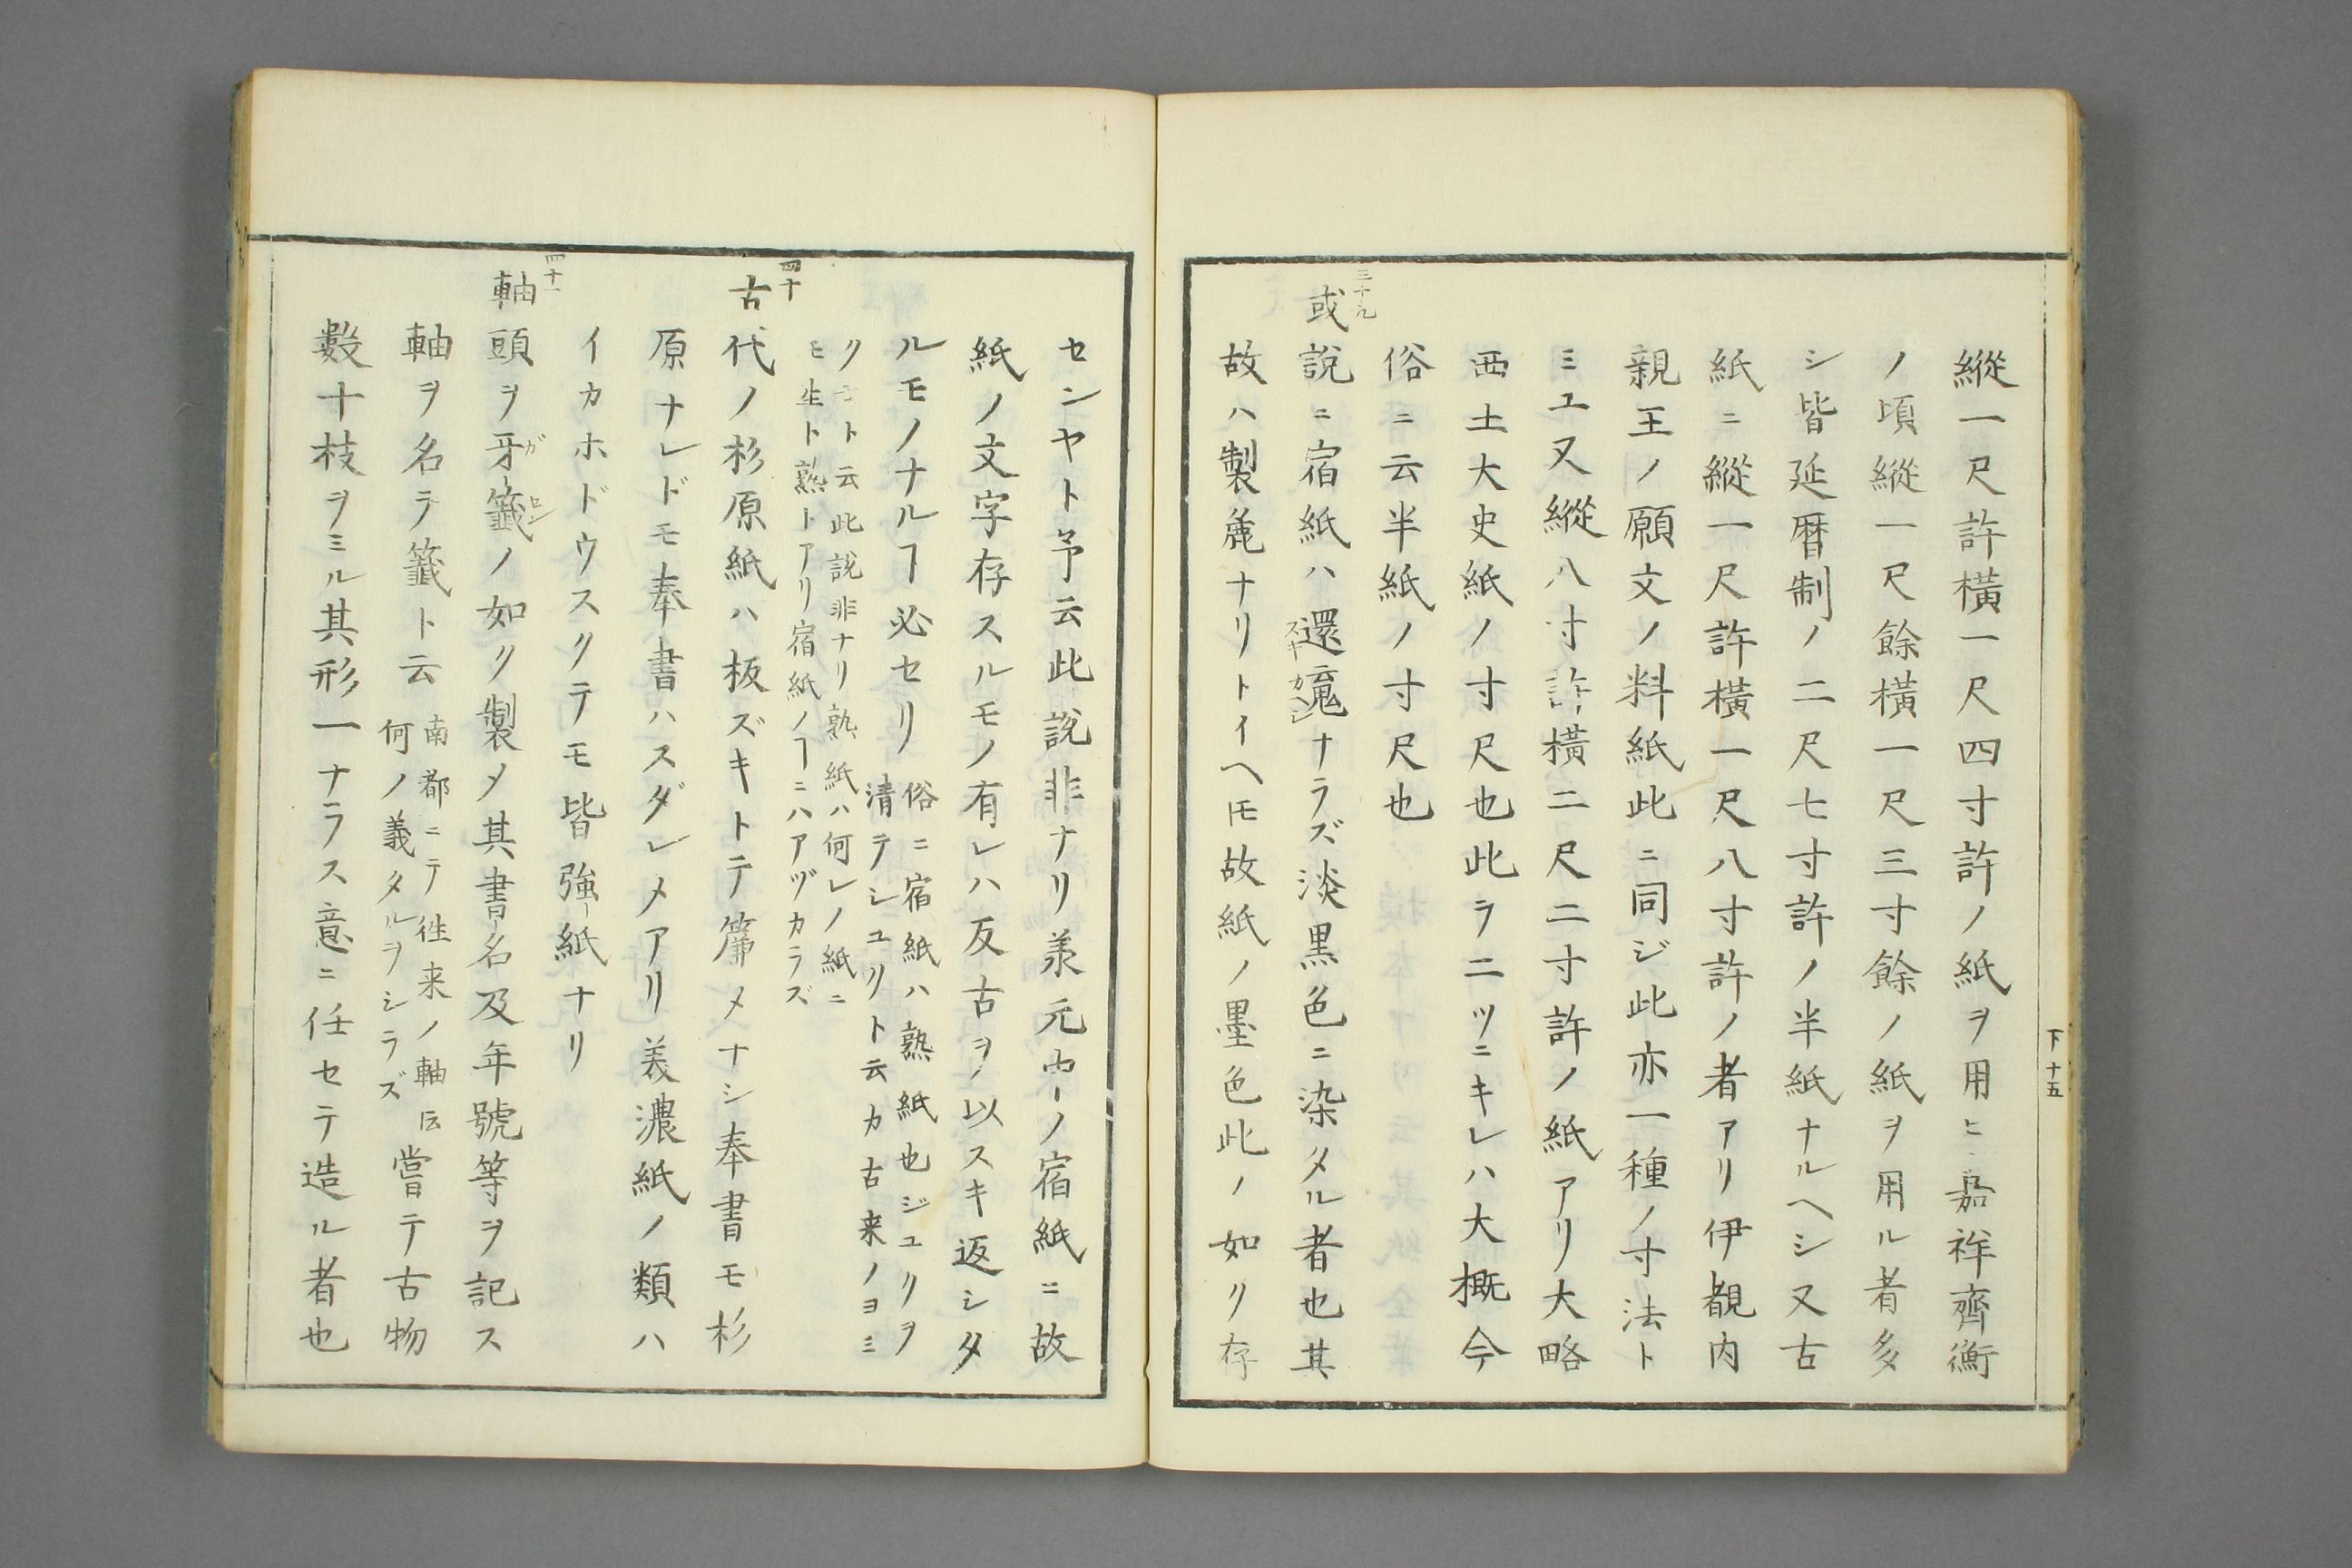 縱一尺許橫一尺四寸許ノ紙ヲ用ヒ嘉祥齊衡
ノ頃縱一尺餘橫一尺三寸餘ノ紙ヲ用ル者多
シ皆延暦制ノ二尺七寸許ノ半紙ナルヘシ又古
紙ニ縱一尺許橫一尺八寸許ノ者アリ伊覩内
親王ノ願文ノ料紙此ニ同ジ此亦一種ノ寸法ト
ミユ又縱八寸許橫二尺二寸許ノ紙アリ大略
西土大史紙ノ寸尺也此ヲ二ツニキレハ大概今
俗ニ云半紙ノ寸尺也
三十九
或説ニ宿紙ハ還魂ナラズ淡黒色ニ染タル者也其
スキカヘシ
故ハ製麁ナリトイヘ𪜈故紙ノ墨色此ノ如ク存
下十五
センヤト予云此説非ナリ天元中ノ宿紙ニ故
紙ノ文字存スルモノ有レハ反古ヲ以スキ返シタ
ルモノナルヿ必セリ
俗ニ宿紙ハ熟紙也ジユクヲ
清テシユクト云カ古来ノヨミ
クセト云此説非ナリ熟紙ハ何レノ紙ニ
モ生ト熟トアリ宿紙ノヿニハアヅカラズ
四十
古代ノ杉原紙ハ板ズキトテ簾メナシ奉書モ杉
原ナレドモ奉書ハスダレメアリ美濃紙ノ類ハ
イカホドウスクテモ皆強紙ナリ
四十一
軸頭ヲ牙籤ノ如ク製メ其書名及年號等ヲ記ス
ガセン
軸ヲ名テ籤ト云
南都ニテ徃来ノ軸𪜈
何ノ義タルヲシラズ
嘗テ古物
數十枝ヲミル其形一ナラス意ニ任セテ造ル者也